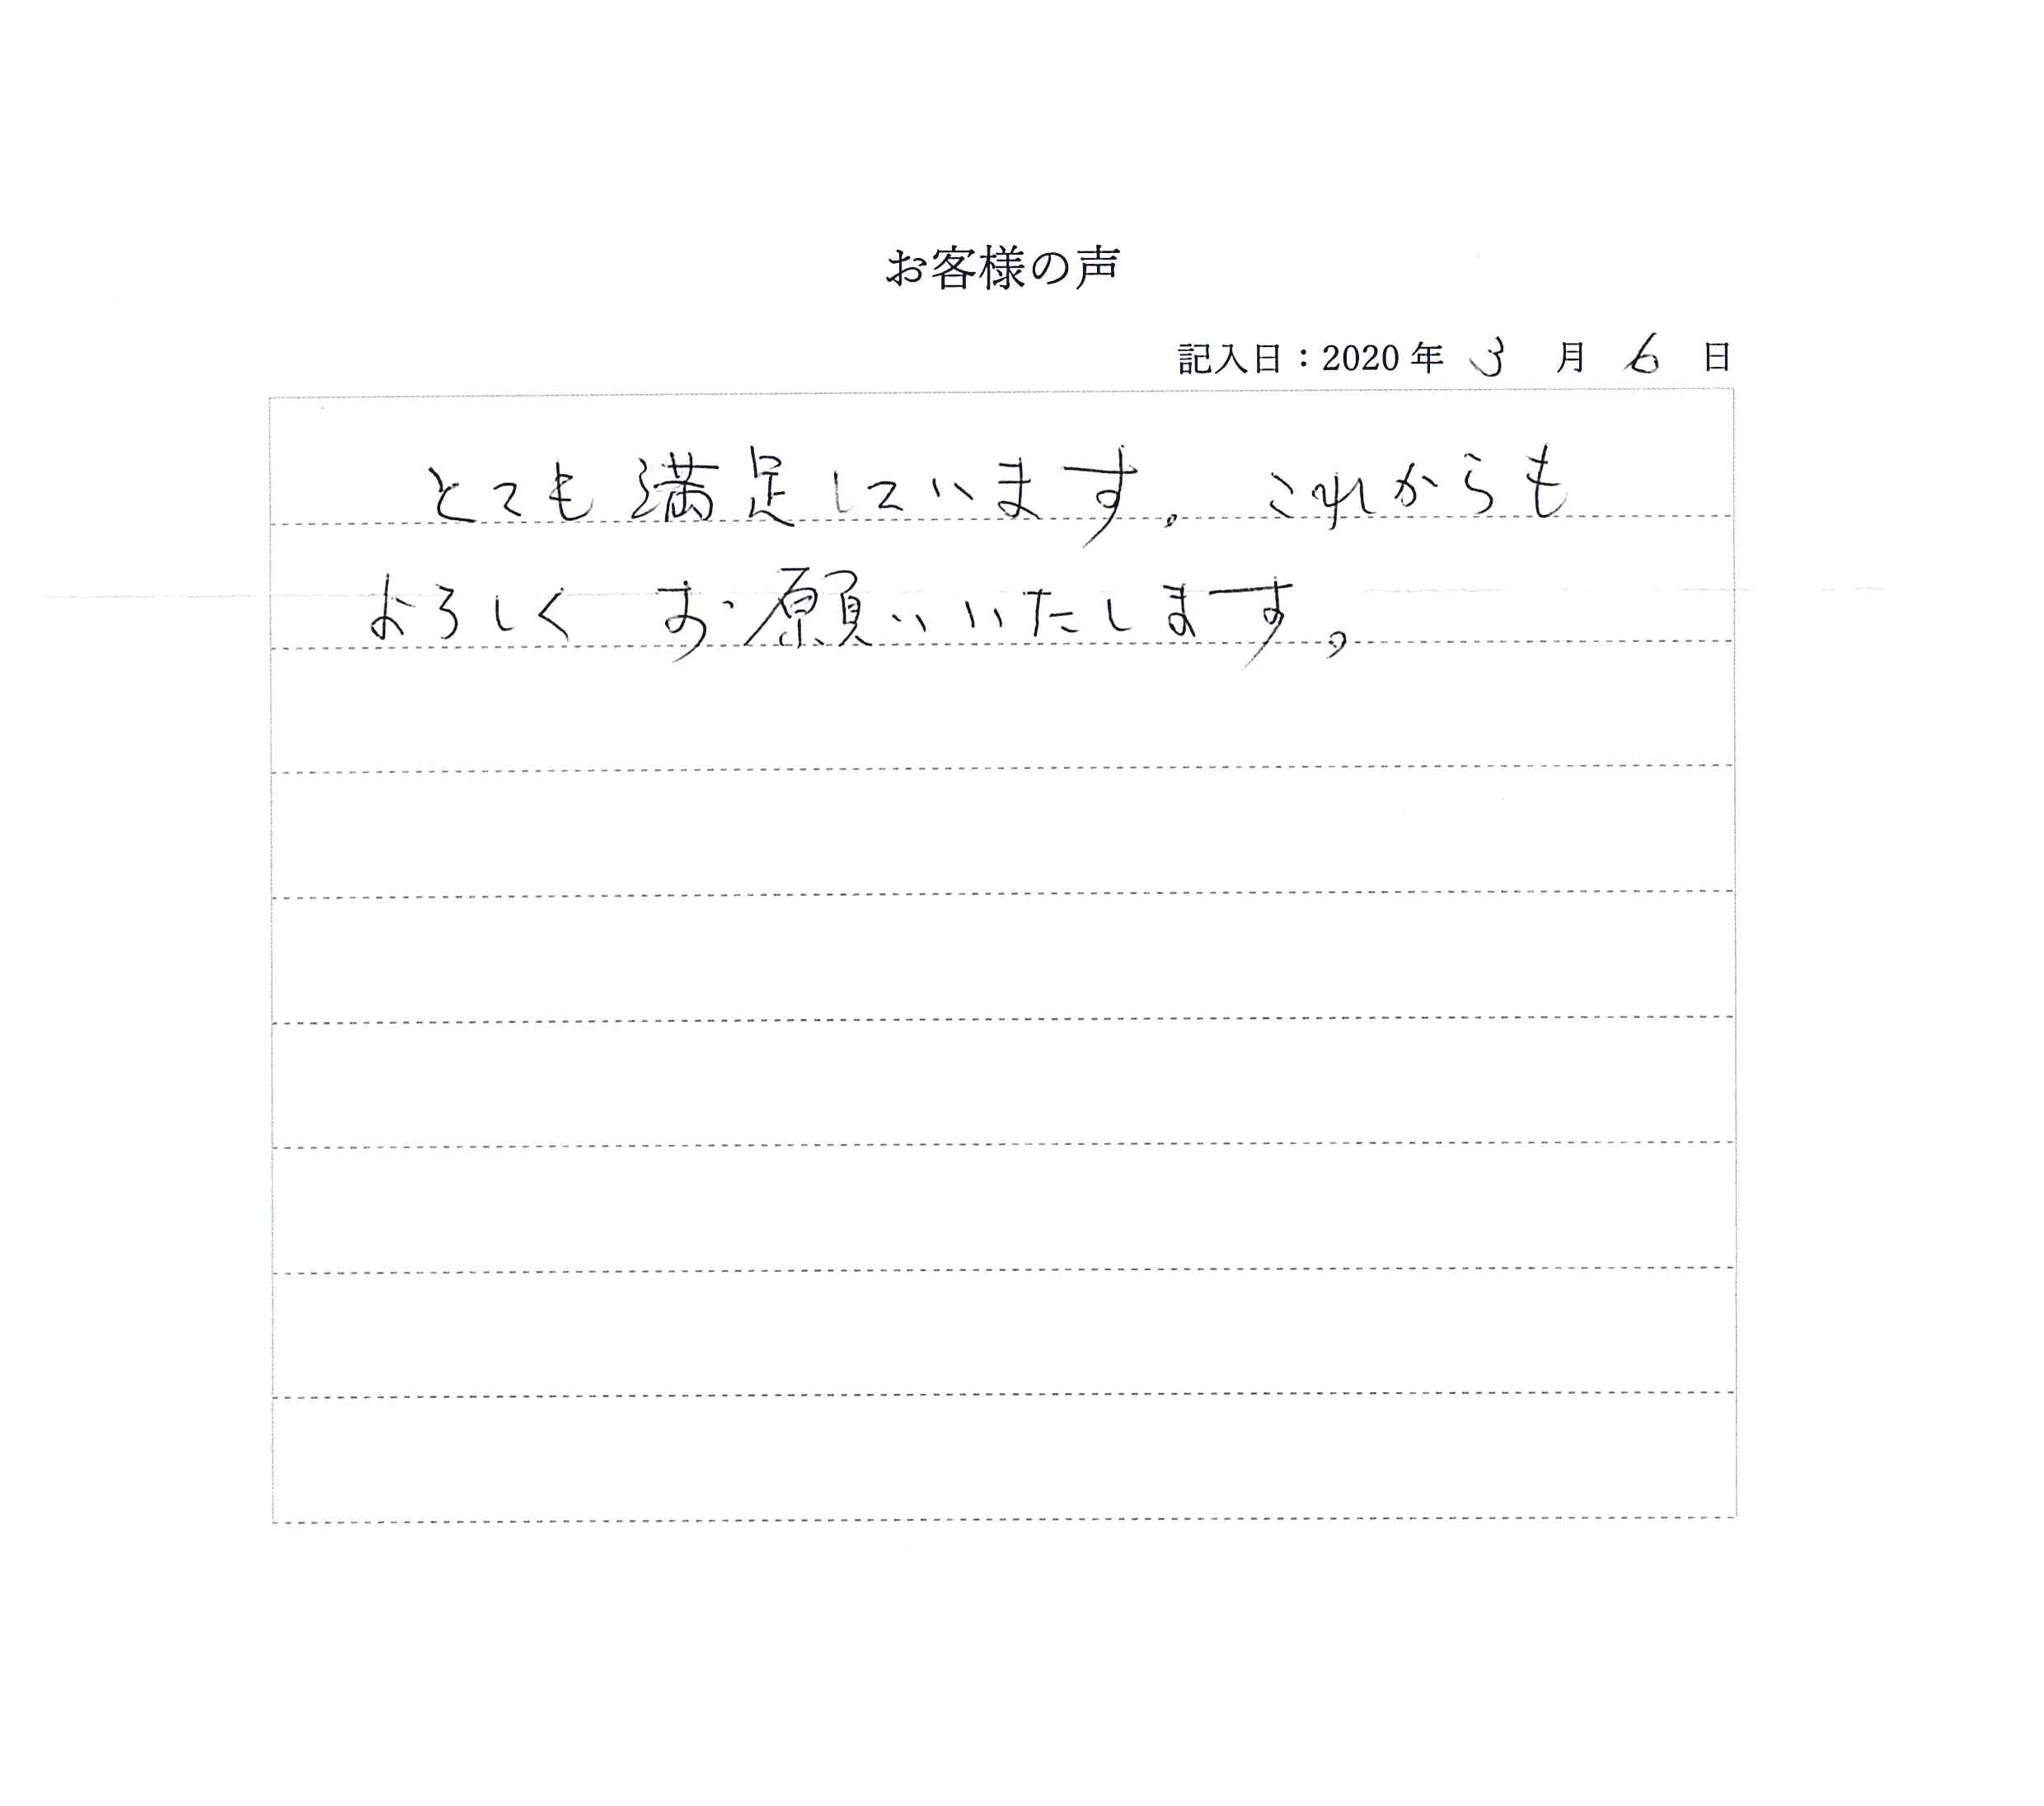 お客様の声
記入日：2020 年 3 月 6 日
とても満足しています。これからも
よろしく お願いいたします。